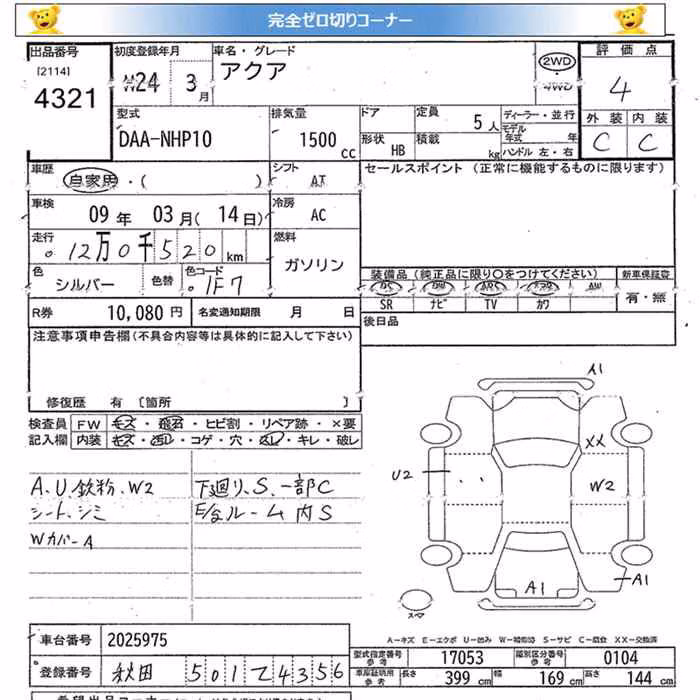 完全ゼロ切りコーナー
出品番号 初度登録年月 車名・グレード 評価点
[2114] 4321 H24 3月 アクア 2WD 4WD 4
型式 排気量 ドア 定員 ディーラー・並行 外装 内装
DAA-NHP10 1500cc 5人 モデル年式 年 C C
形状 HB 積載 kg ハンドル 左・右
車歴 自家用・( ) シフト AT セールスポイント (正常に機能するものに限ります)
車検 09年 03月(14日) 冷房 AC
走行 12万0千520km 燃料 ガソリン
色 シルバー 色替 色コード 1F7
装備品(純正品に限り○をつけてください) 新車保証書
PS PW ABS エアB AW 有・無
SR ナビ TV カワ
R券 10,080円 名変通知期限 月 日 後日品
注意事項申告欄(不具合内容等は具体的に記入して下さい)
修復歴 有 〔箇所 〕
検査員 FW キズ・飛石・ヒビ割・リペア跡・×要
記入欄 内装 キズ・汚れ・コゲ・穴・スレ・キレ・破レ
A、U、鉄粉、W2 下廻り、S、一部C
シート、シミ E/gルーム内S
WカバーA
A1
XX
U2 W2
A1 A1
スペア
A-キズ E-エクボ U-凹み W-補修跡 S-サビ C-腐食 XX-交換済
車台番号 2025975
型式指定番号 参考 17053 類別区分番号 参考 0104
登録番号 秋田 501 て 4356
車庫証明用 参考 長さ 399cm 幅 169cm 高さ 144cm